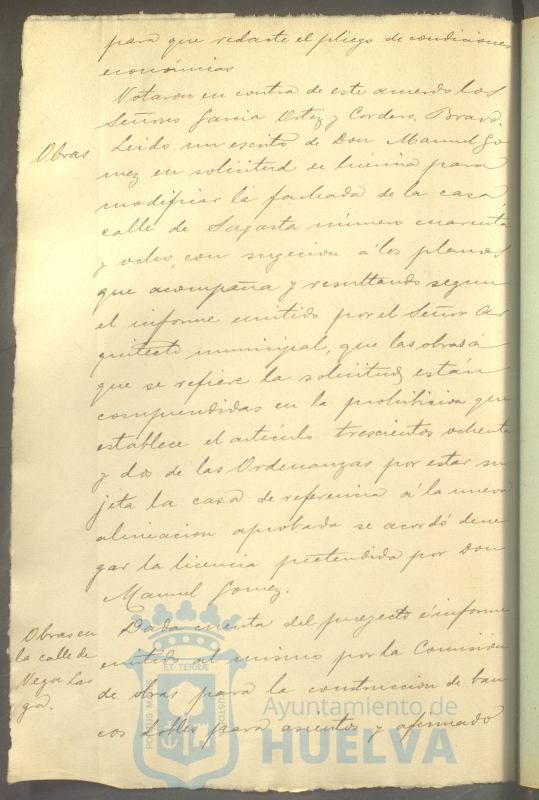 para que redacte el pliego de condiciones
económicas
Votaron en contra de este acuerdo los
Señores Garcia Ortiz y Cordero Bravo.
Obras
Leido un escrito de Don Manuel Go
mez en solicitud de licencia para
modificar la fachada de la casa
calle de Sagasta número cuarenta
y ocho, con sugecion á los planos
que acompaña y resultando segun
el informe emitido por el Señor Ar
quitecto municipal, que las obras á
que se refiere la solicitud están
comprendidas en la prohibicion que
establece el artículo trescientos ochenta
y dos de las Ordenanzas por estar su
jeta la casa de referencia á la nueva
alineacion aprobada se acordó dene
gar la licencia pretendida por Don
Manuel Gomez.
Obras en
la calle de
Vega Lar
ga.
Dada cuenta del proyecto é informe
emitido al mismo por la Comisión
de obras para la construccion de ban
cos dobles para asientos y afirmado
PORTUS MARIS ET TERRÆ CUSTODIA
Ayuntamiento de
HUELVA